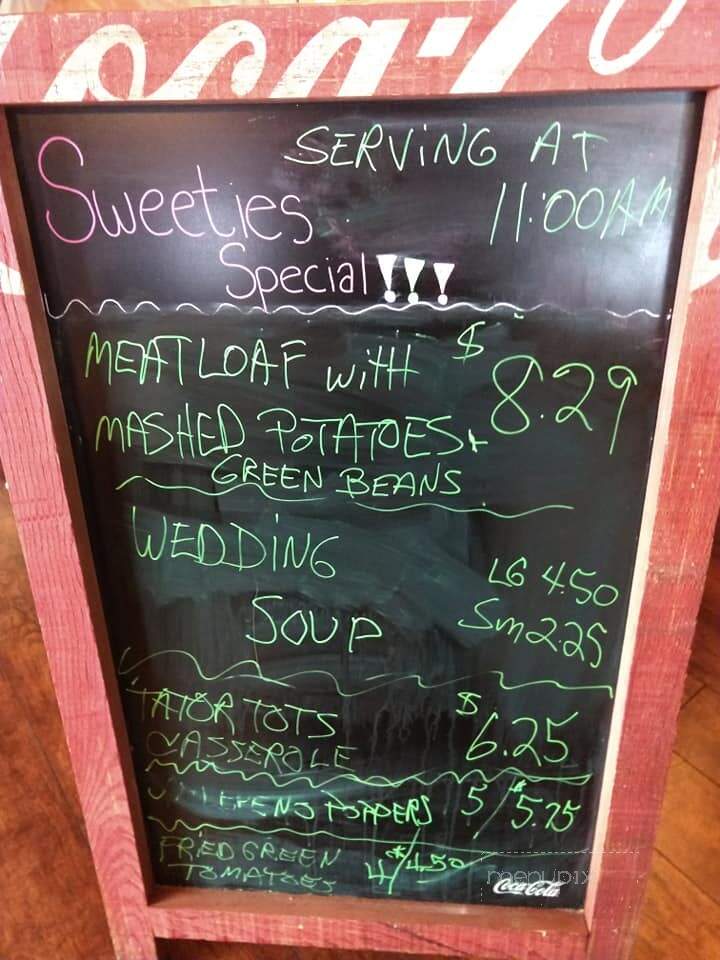 Coca-Cola
SERViNG AT
11:00AM
Sweeties
Special!!!
MEATLOAF with $ 8.29
MASHED POTATOES +
GREEN BEANS
WEDDiNG
SOUP
LG 4.50
Sm 2.25
TATOR TOTS $ 6.25
CASSEROLE
POPPERS 5/$5.75
FRIED GREEN 4/$4.50
TOMATOES
menupix
Coca-Cola